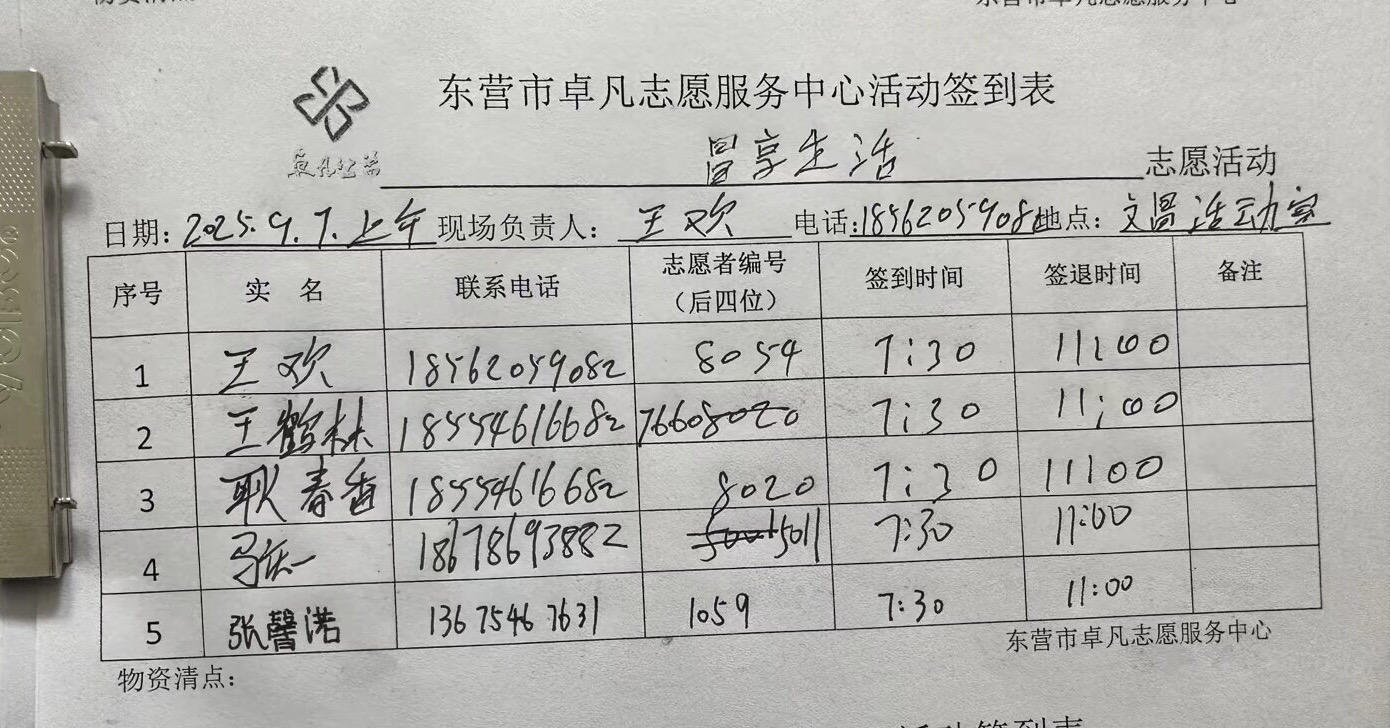 东营市卓凡志愿服务中心活动签到表
冒享生活 志愿活动
日期: 2025.9.7.上午 现场负责人: 王欢 电话:18562059082 地点: 文昌活动室
序号 实 名 联系电话 志愿者编号(后四位) 签到时间 签退时间 备注
1 王欢 18562059082 8054 7:30 11:00
2 王鹤林 18554616682 7660 7:30 11:00
3 耿春香 18554616682 8020 7:30 11:00
4 18678693882 5011 7:30 11:00
5 张馨诺 13675467631 1059 7:30 11:00
东营市卓凡志愿服务中心
物资清点: